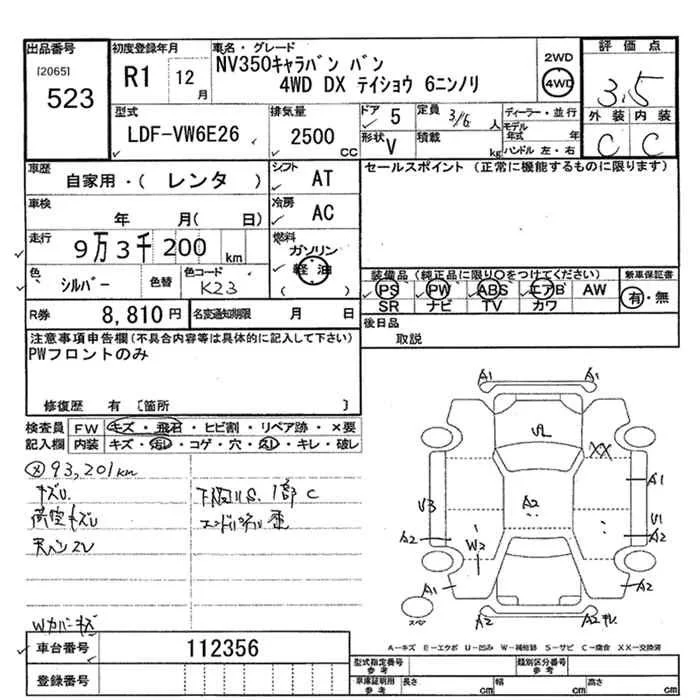 出品番号
[2065]
523
初度登録年月
R1 12月
車名・グレード
NV350キャラバン バン
4WD DX テイショウ 6ニンノリ
2WD
4WD
評価点
3.5
外装 内装
C C
型式
LDF-VW6E26
排気量
2500 CC
ドア 5
形状 V
定員 3/6 人
積載 kg
ディーラー・並行
モデル年式 年
ハンドル 左・右
車歴
自家用・( レンタ )
シフト AT
セールスポイント (正常に機能するものに限ります)
車検
年 月( 日)
冷房 AC
走行
9万3千200 km
燃料
ガソリン
軽油
( )
色 シルバー 色替
色コード K23
装備品(純正品に限り○をつけてください)
PS PW ABS エアB AW
SR ナビ TV カワ
新車保証書
有・無
R券 8,810円
名変通知期限 月 日
後日品
取説
注意事項申告欄(不具合内容等は具体的に記入して下さい)
PWフロントのみ
修復歴 有 [箇所 ]
検査員記入欄
FW キズ・飛石・ヒビ割・リペア跡・×要
内装 キズ・汚レ・コゲ・穴・スレ・キレ・破レ
93,201km
キズU
下廻りS、1部C
Wカバーキズ
車台番号 112356
登録番号
A1 A1
XX
A1
V3
A2
U1
A2 A2
W2
A1 A2
スペア
A2 A2キレ
A-キズ E-エクボ U-凹み W-補修跡 S-サビ C-腐食 XX-交換済
型式指定番号 参考
類別区分番号 参考
車庫証明用 参考
長さ cm
幅 cm
高さ cm